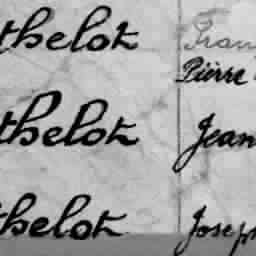 thelot Fran
Pierre
thelot Jean
thelot Joseph